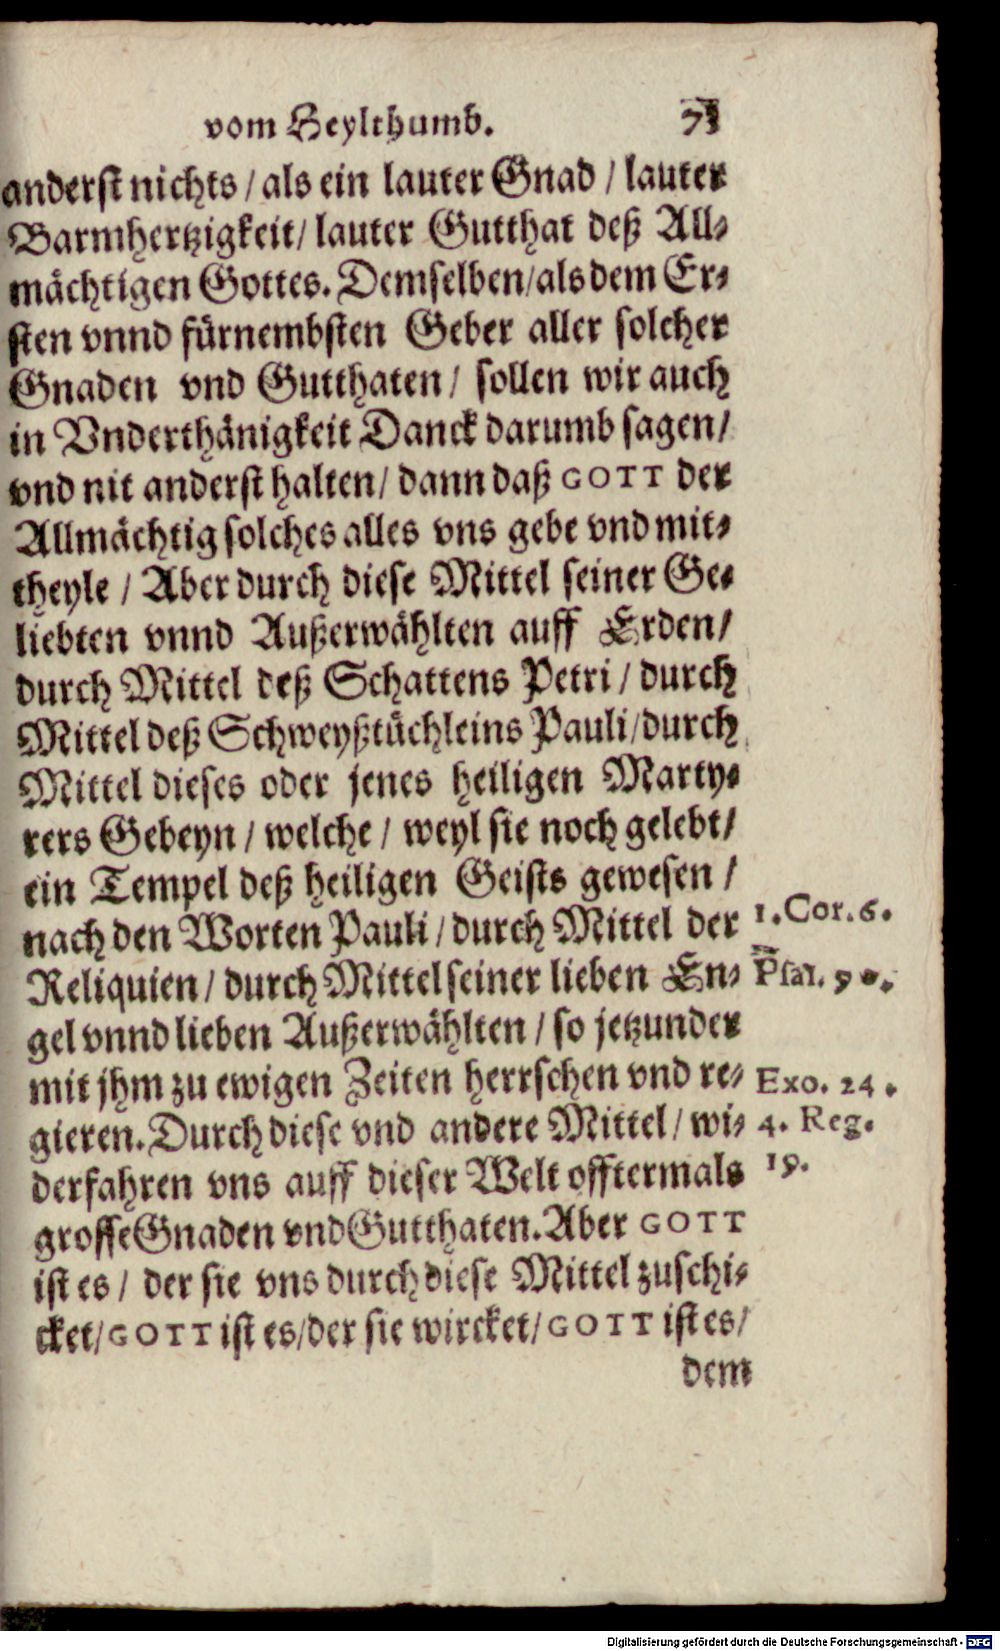 vom Heylthumb. 73
anderst nichts / als ein lauter Gnad / lauter
Barmhertzigkeit / lauter Gutthat deß All-
mächtigen Gottes. Demselben / als dem Er-
sten vnnd fürnembsten Geber aller solcher
Gnaden vnd Gutthaten / sollen wir auch
in Vnderthänigkeit Danck darumb sagen /
vnd nit anderst halten / dann daß GOTT der
Allmächtig solches alles vns gebe vnd mit-
theyle / Aber durch diese Mittel seiner Ge-
liebten vnnd Außerwählten auff Erden /
durch Mittel deß Schattens Petri / durch
Mittel deß Schweyßtüchleins Pauli / durch
Mittel dieses oder jenes heiligen Marty-
rers Gebeyn / welche / weyl sie noch gelebt /
ein Tempel deß heiligen Geists gewesen /
nach den Worten Pauli / durch Mittel der
1. Cor. 6.
Reliquien / durch Mittel seiner lieben En-
Psal. 90.
gel vnnd lieben Außerwählten / so jetzunder
mit jhm zu ewigen Zeiten herrschen vnd re-
Exo. 24.
gieren. Durch diese vnd andere Mittel / wi-
4. Reg.
derfahren vns auff dieser Welt offtermals
19.
grosse Gnaden vnd Gutthaten. Aber GOTT
ist es / der sie vns durch diese Mittel zuschi-
cket / GOTT ist es / der sie wircket / GOTT ist es /
dem
Digitalisierung gefördert durch die Deutsche Forschungsgemeinschaft - DFG